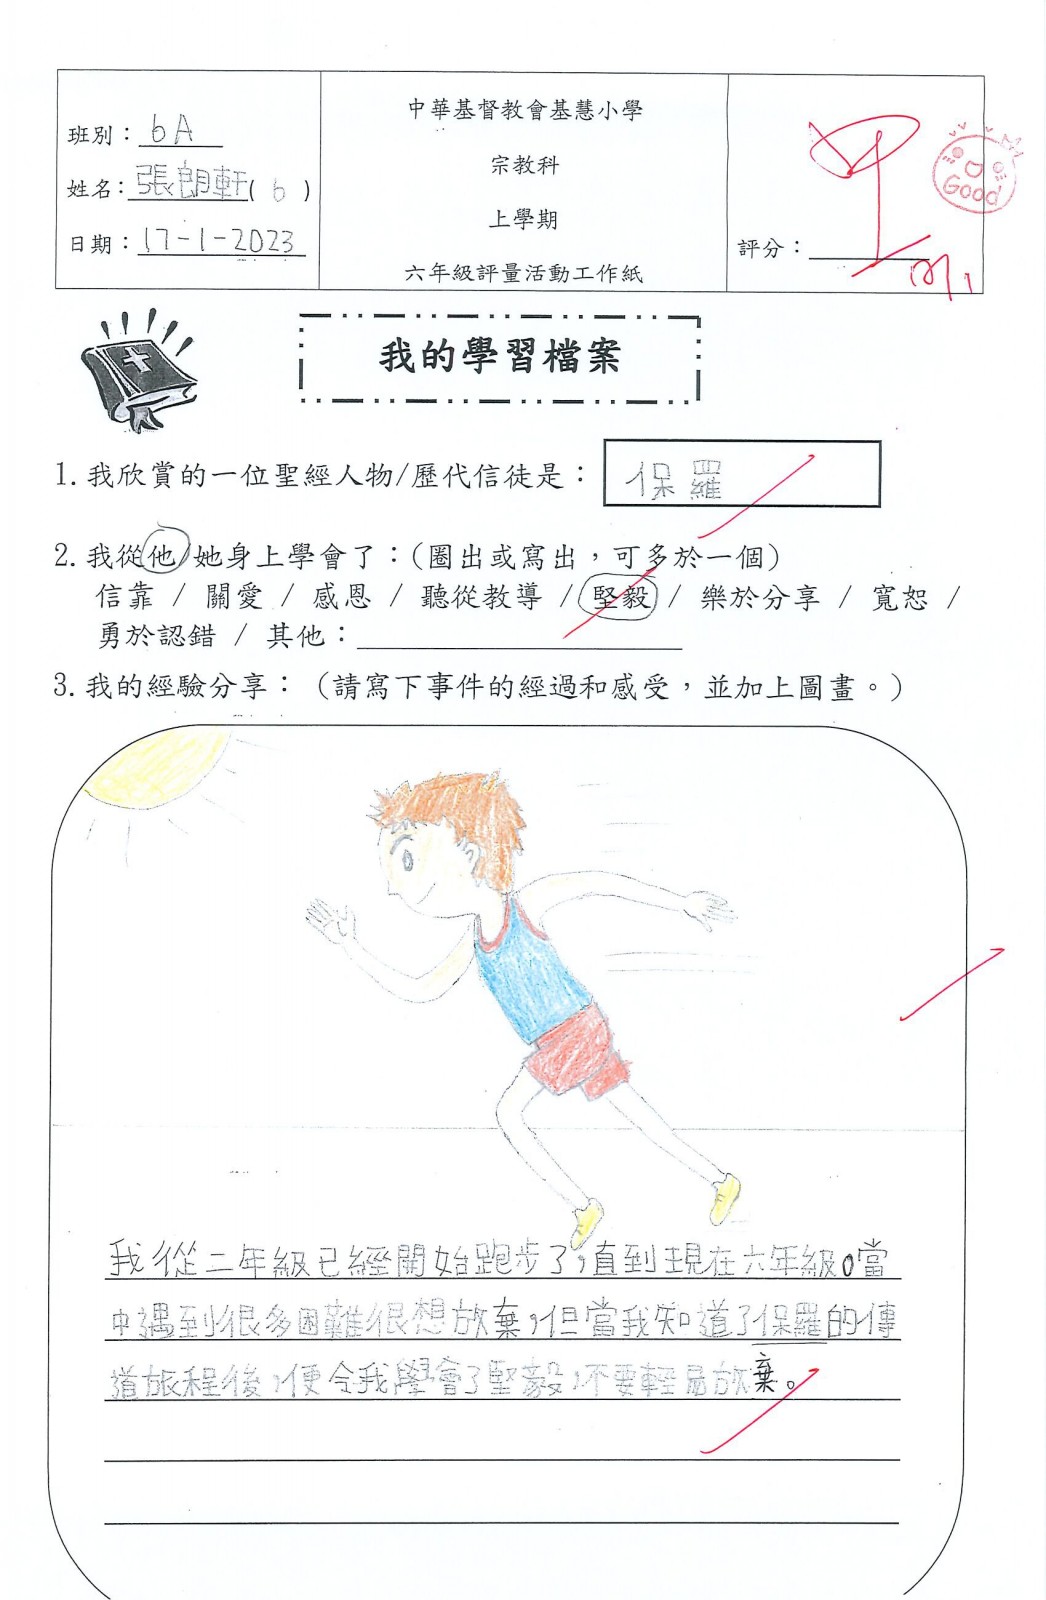 班別：6A
姓名：張朗軒(6)
日期：17-1-2023
中華基督教會基慧小學
宗教科
上學期
六年級評量活動工作紙
評分：甲
Good
我的學習檔案
1.我欣賞的一位聖經人物/歷代信徒是：保羅
2.我從他/她身上學會了：(圈出或寫出，可多於一個)
信靠 / 關愛 / 感恩 / 聽從教導 / 堅毅 / 樂於分享 / 寬恕 /
勇於認錯 / 其他：
3.我的經驗分享：（請寫下事件的經過和感受，並加上圖畫。）
我從二年級已經開始跑步了，直到現在六年級。當
中遇到很多困難很想放棄，但當我知道了保羅的傳
道旅程後，便令我學會了堅毅，不要輕易放棄。